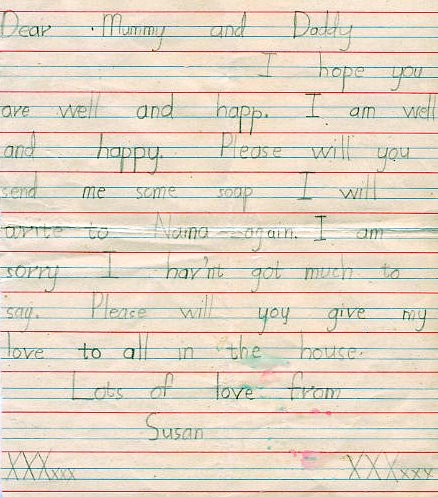 Dear Mummy and Daddy
I hope you
are well and happ. I am well
and happy. Please will you
send me some soap I will
write to Nana again. I am
sorry I hav'nt got much to
say. Please will you give my
love to all in the house.
Lots of love from
Susan
XXXxxx XXXxxx